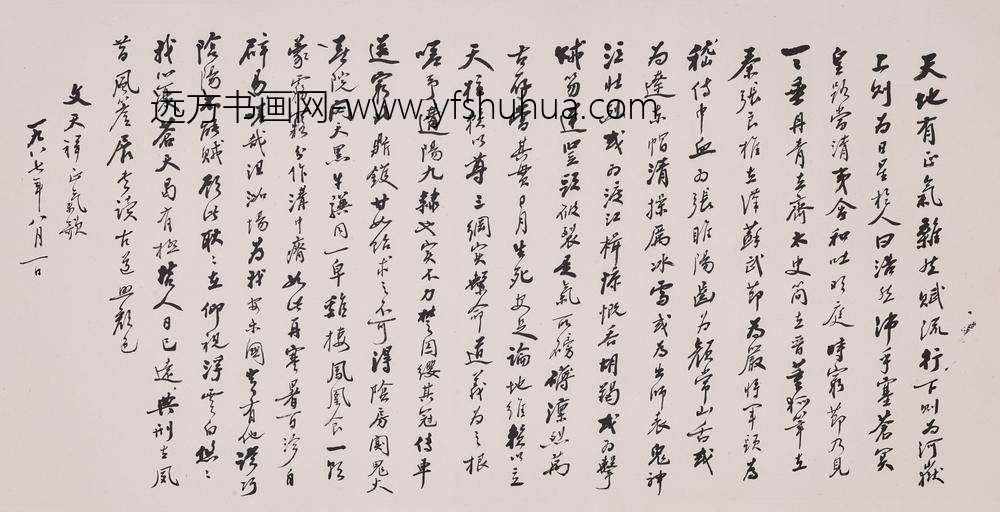 天地有正氣雜然賦流行下則為河嶽
上則為日星於人曰浩然沛乎塞蒼冥
皇路當清夷含和吐明庭時窮節乃見
一一垂丹青在齊太史簡在晉董狐筆在
秦張良椎在漢蘇武節為嚴將軍頭為
嵇侍中血為張睢陽齒為顏常山舌或
為遼東帽清操厲冰雪或為出師表鬼神
泣壯或為渡江楫慷慨吞胡羯或為擊
賊笏逆豎頭破裂是氣所磅礴凜烈萬
古存當其貫日月生死安足論地維賴以立
天柱賴以尊三綱實繫命道義為之根
嗟予遘陽九隸也實不力楚囚纓其冠傳車
送窮北鼎鑊甘如飴求之不可得陰房闃鬼火
春院閟天黑牛驥同一皁雞棲鳳凰食一朝
蒙霧露分作溝中瘠如此再寒暑百沴自
辟易哉沮洳場為我安樂國豈有他謬巧
陰陽不能賊顧此耿耿在仰視浮雲白悠悠
我心悲蒼天曷有極哲人日已遠典刑在夙
昔風簷展書讀古道照顏色
文天祥正氣歌
一九八七年八月一日
远方书画网:www.yfshuhua.com